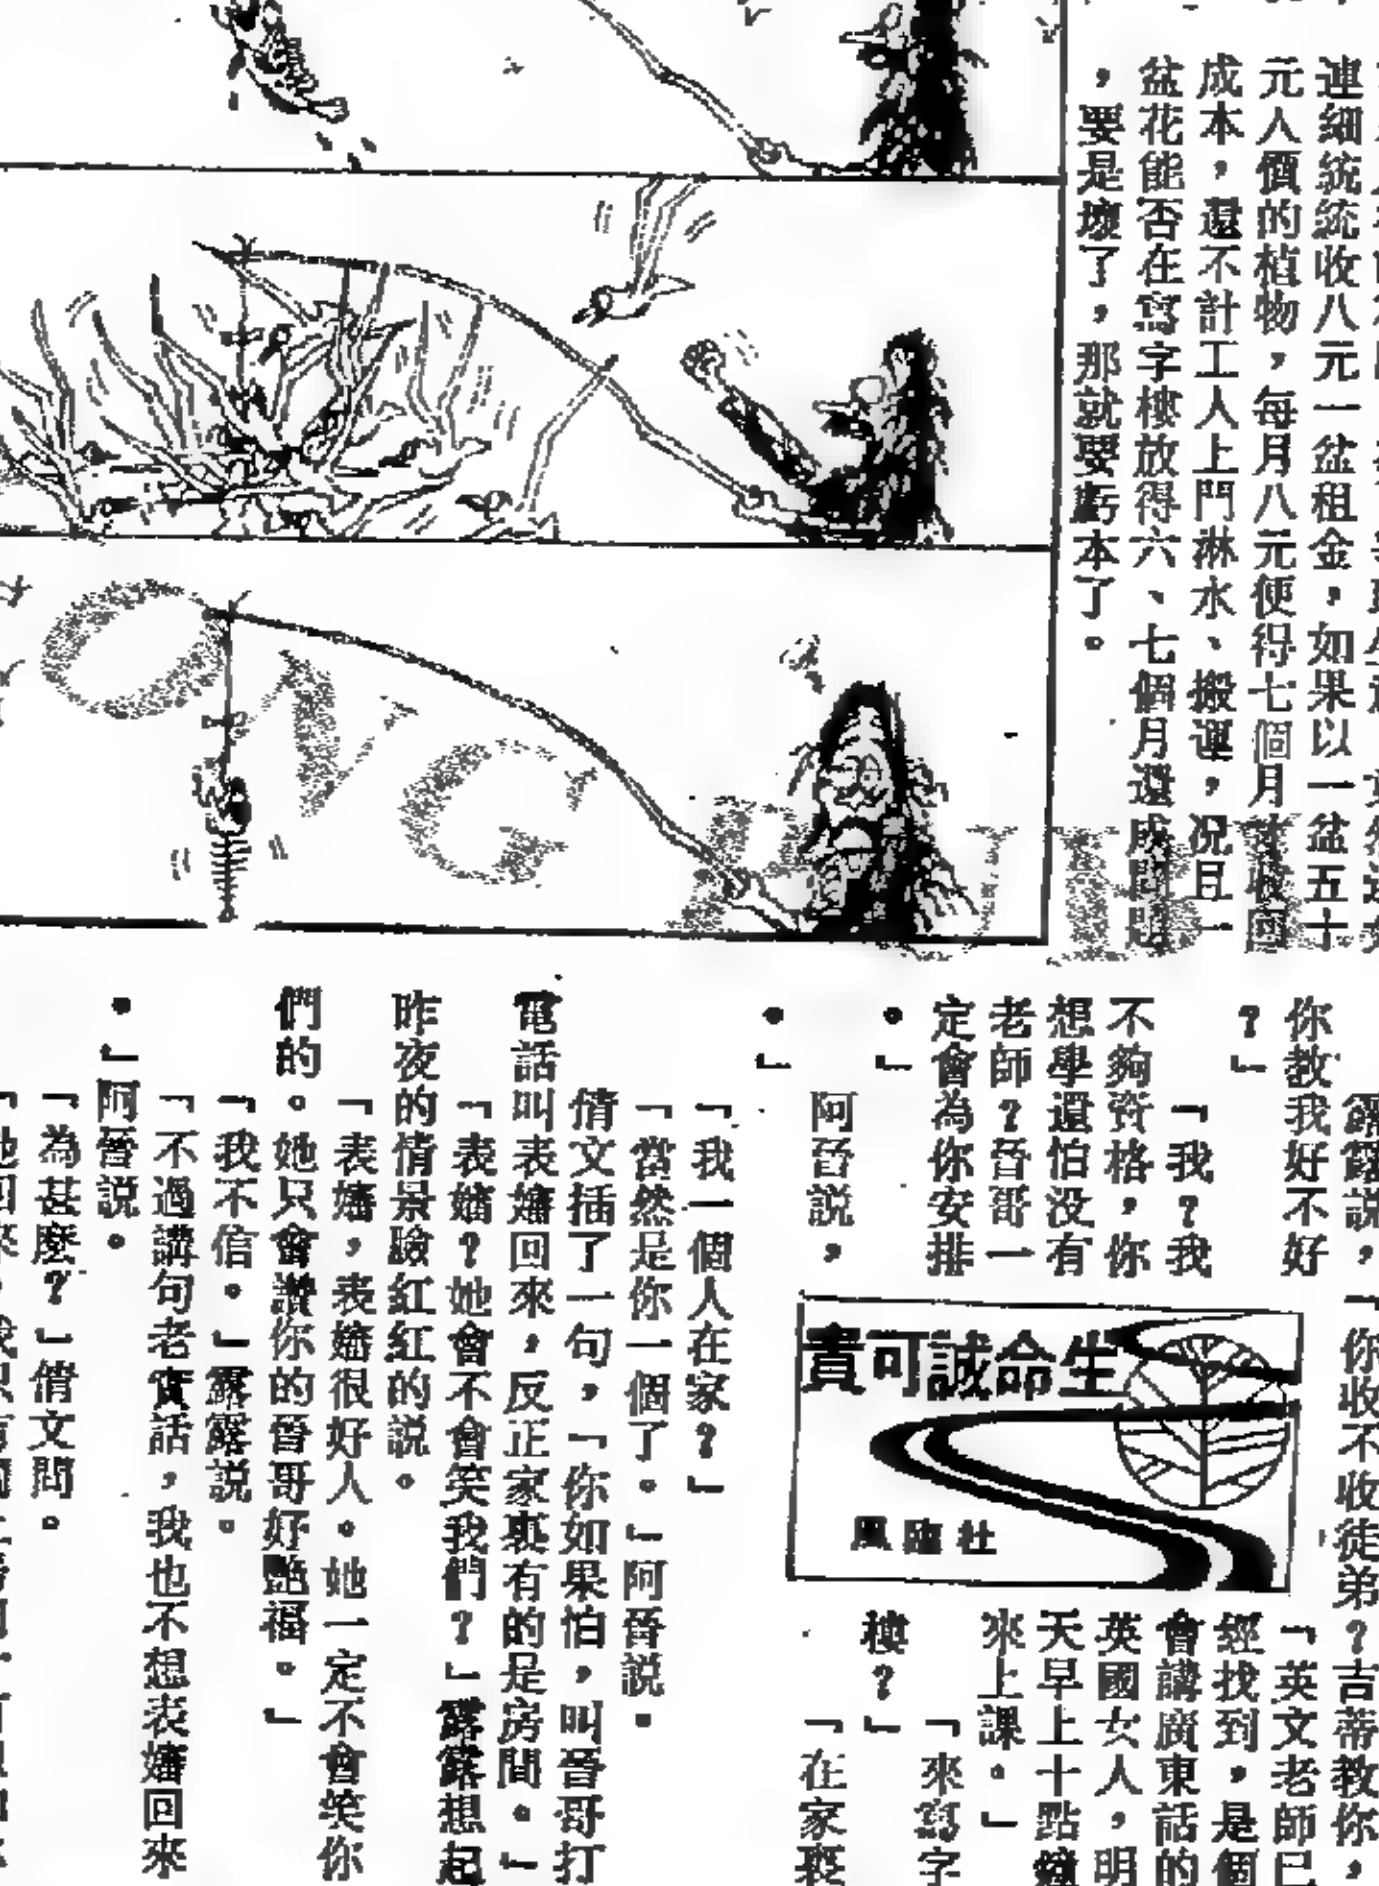 連細統統收八元一盆租金，如果以一盆五十
元人價的植物，每月八元便得七個月才收回
成本，還不計工人上門淋水、搬運，況且一
盆花能否在寫字樓放得六、七個月還成問題
，要是壞了，那就要虧本了。
露露說，「你收不收徒弟？吉蒂教你，
你教我好不好
？」
「我？我
不夠資格，你
想學還怕没有
老師？晉哥一
定會為你安排
。」
阿晉説，
。」
生命誠可貴
風臨社
「英文老師已
經找到，是個
會講廣東話的
英國女人，明
天早上十點鐘
來上課。」
「來寫字
樓？」
「在家裏
「我一個人在家？」
「當然是你一個了。」阿晉説。
倩文插了一句，「你如果怕，叫晉哥打
電話叫表嬸回來，反正家裏有的是房間。」
「表嬸？她會不會笑我們？」露露想起
昨夜的情景臉紅紅的説。
「表嬸，表嬸很好人。她一定不會笑你
們的。她只會讚你的晉哥好艷福。」
「我不信。」露露説。
「不過講句老實話，我也不想表嬸回來
。」阿晉説。
「為甚麼？」倩文問。